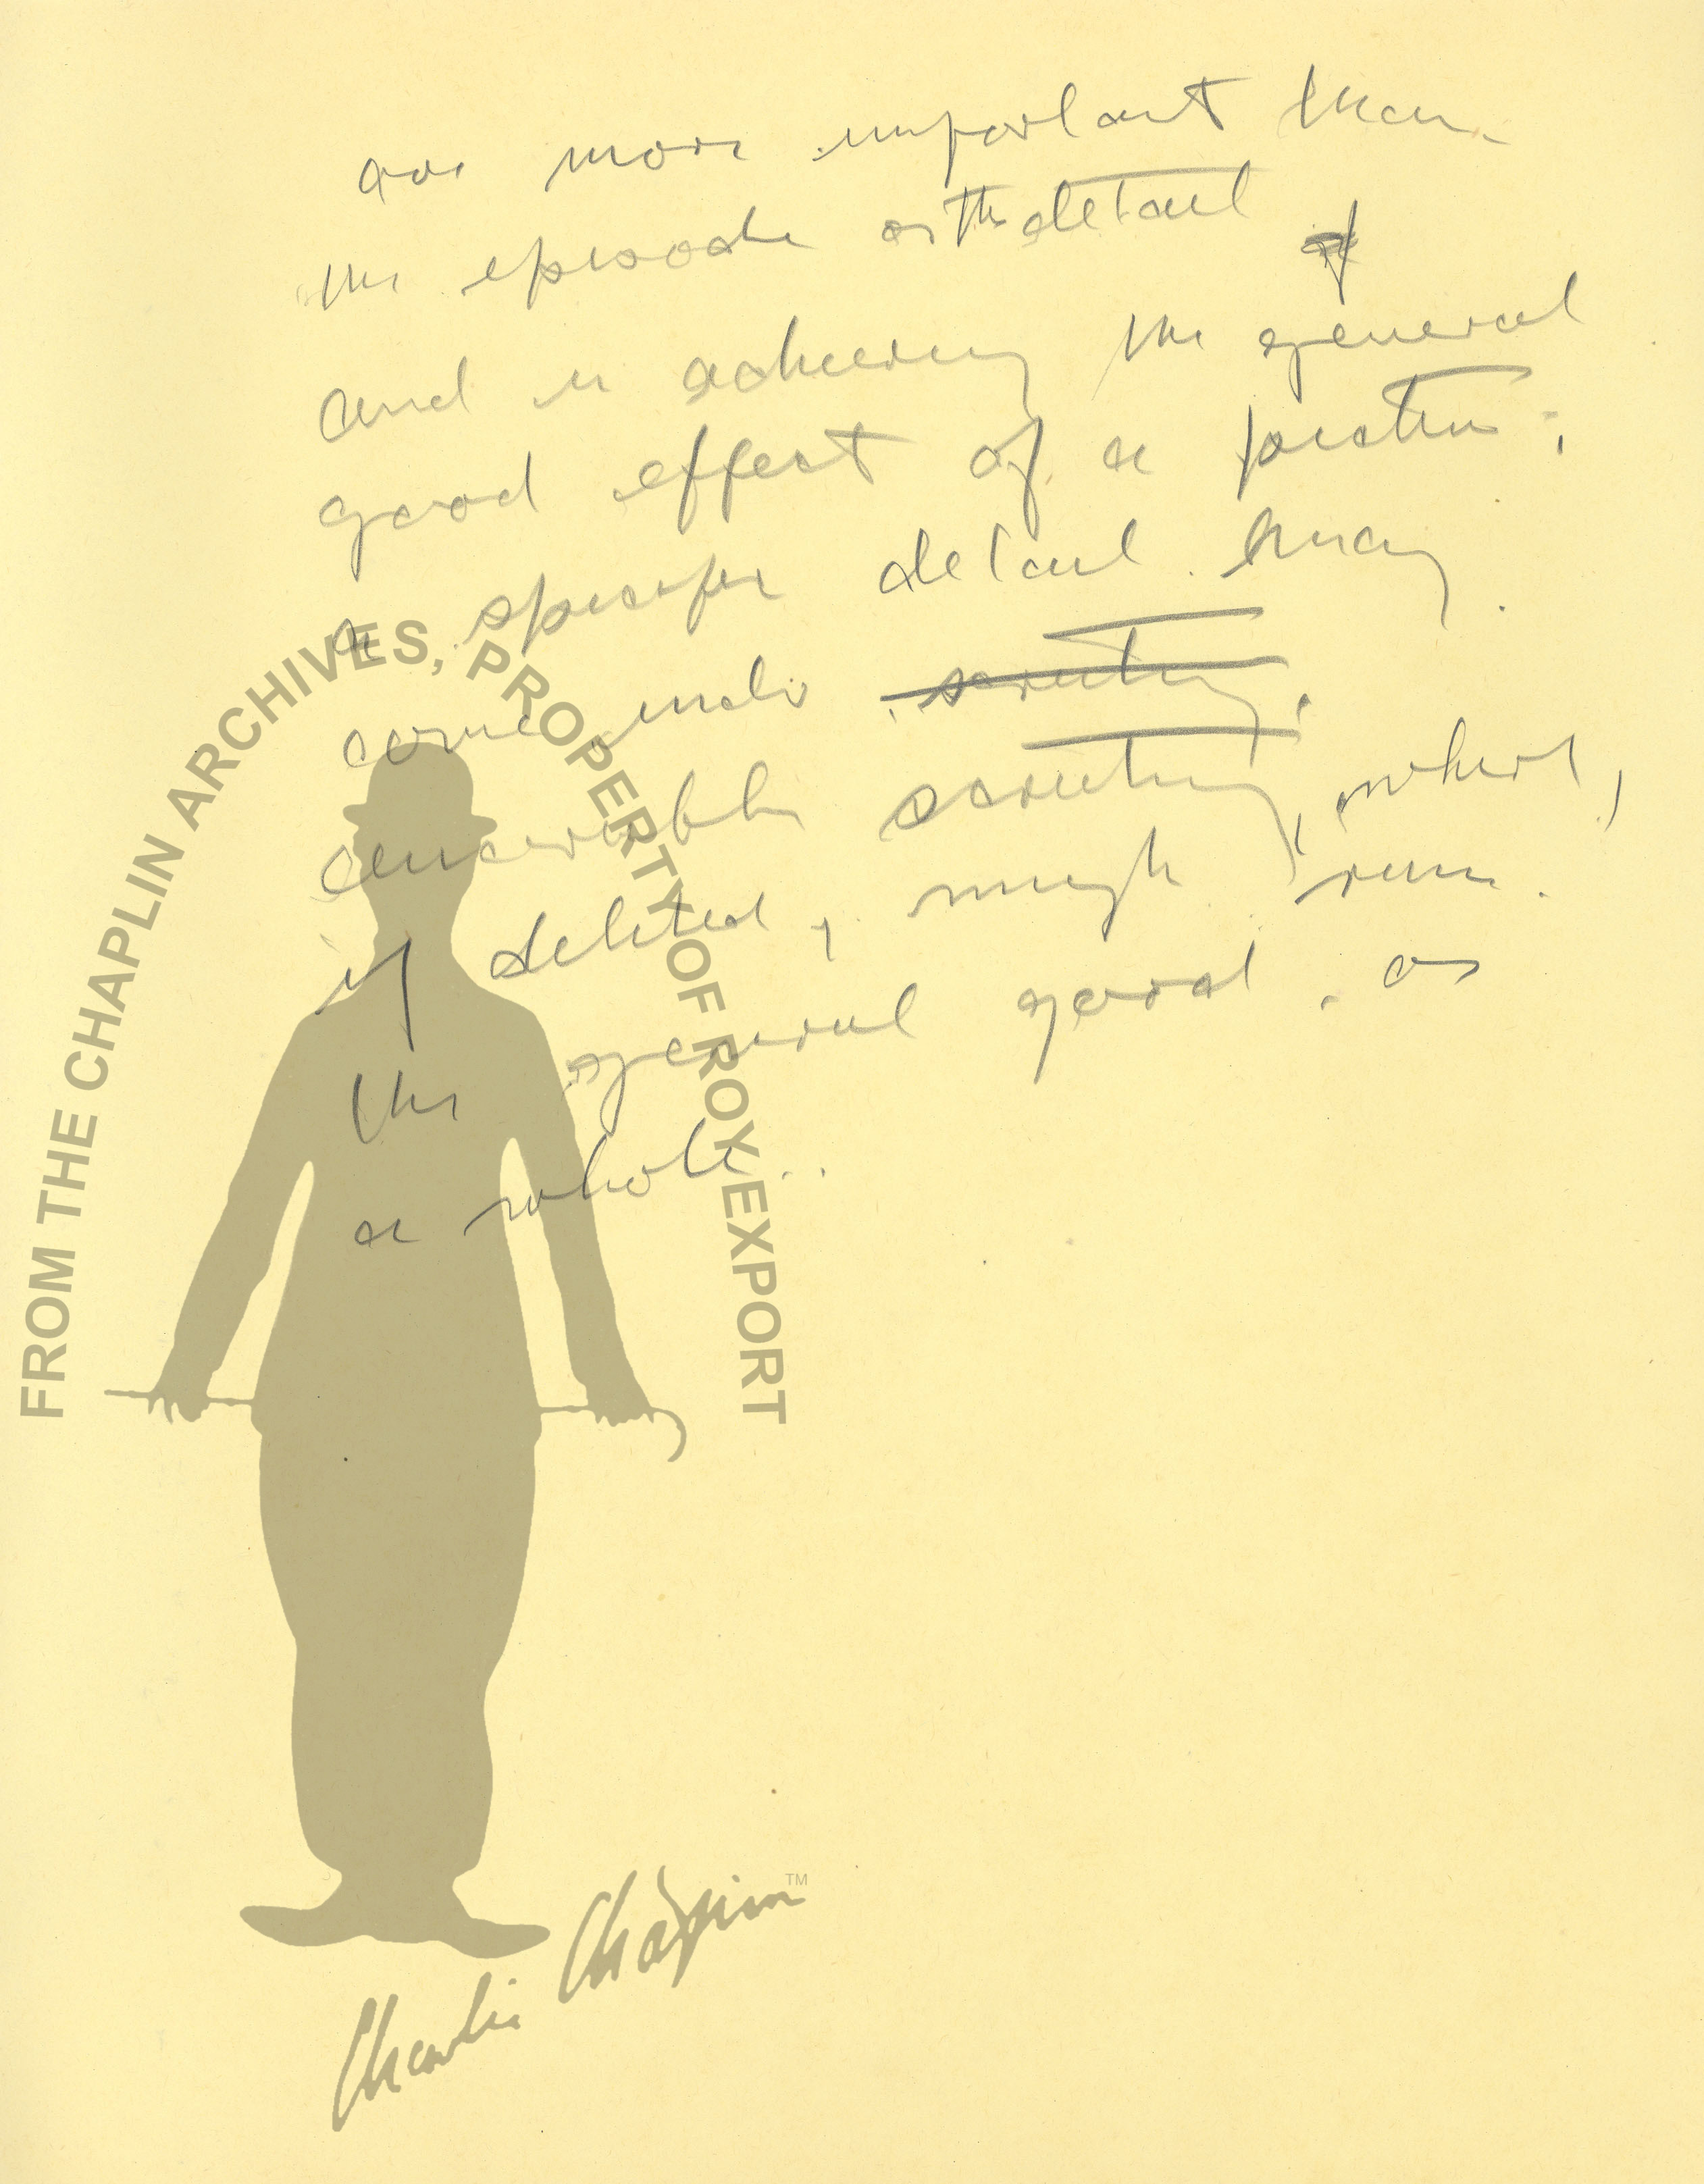 are more important than
the episode or the detail
and in achieving the general
good effect of a picture;
a specific detail may
come under scrutiny.
censorable scrutiny, which,
if deleted, might ruin
the general good as
a whole..
FROM THE CHAPLIN ARCHIVES, PROPERTY OF ROY EXPORT
Charlie Chaplin™